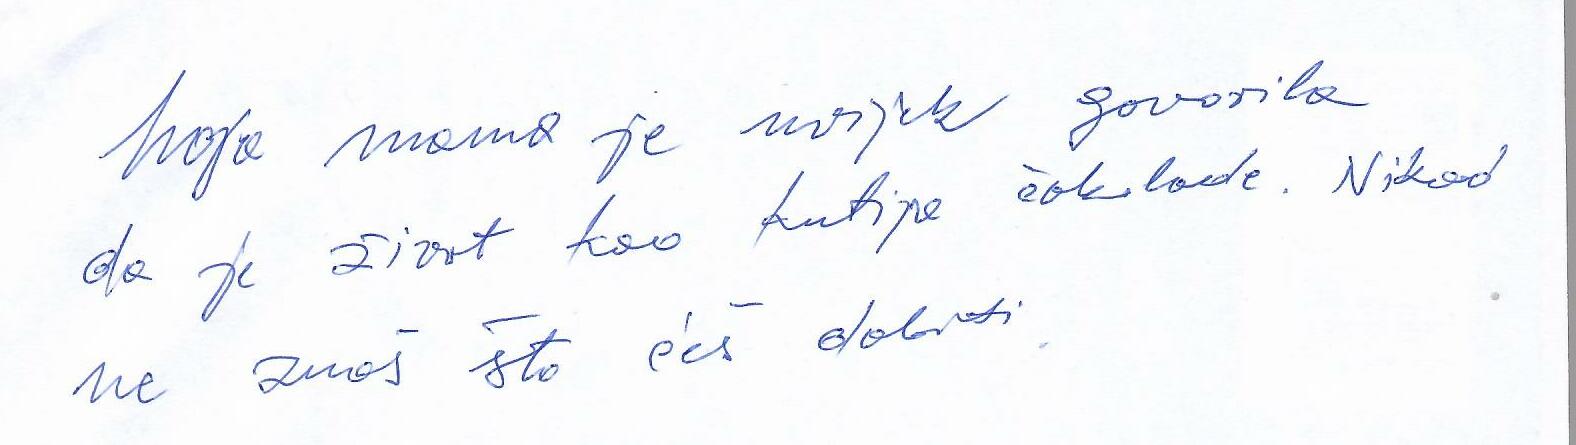 Moja mama je uvijek govorila
da je život kao kutija čokolade. Nikad
ne znaš što ćeš dobiti.